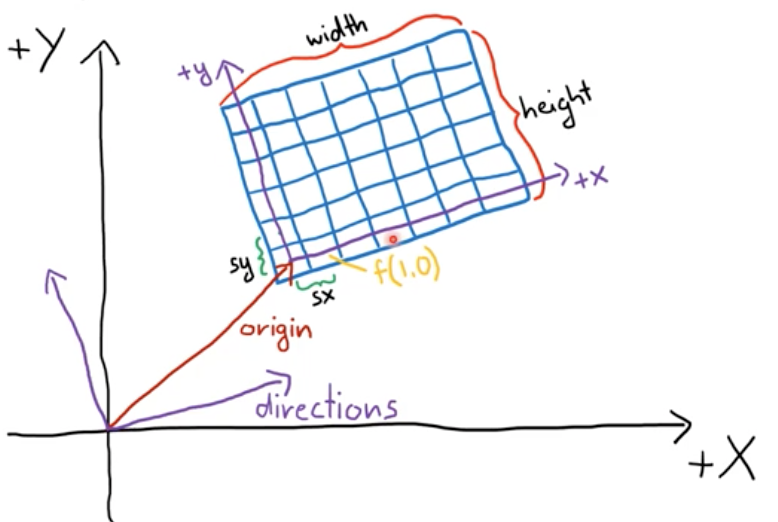 width
+Y
+y
height
+x
sy
f(1,0)
sx
origin
directions
+X